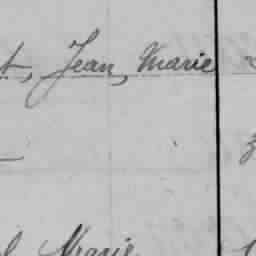 t, Jean, Marie
Marie